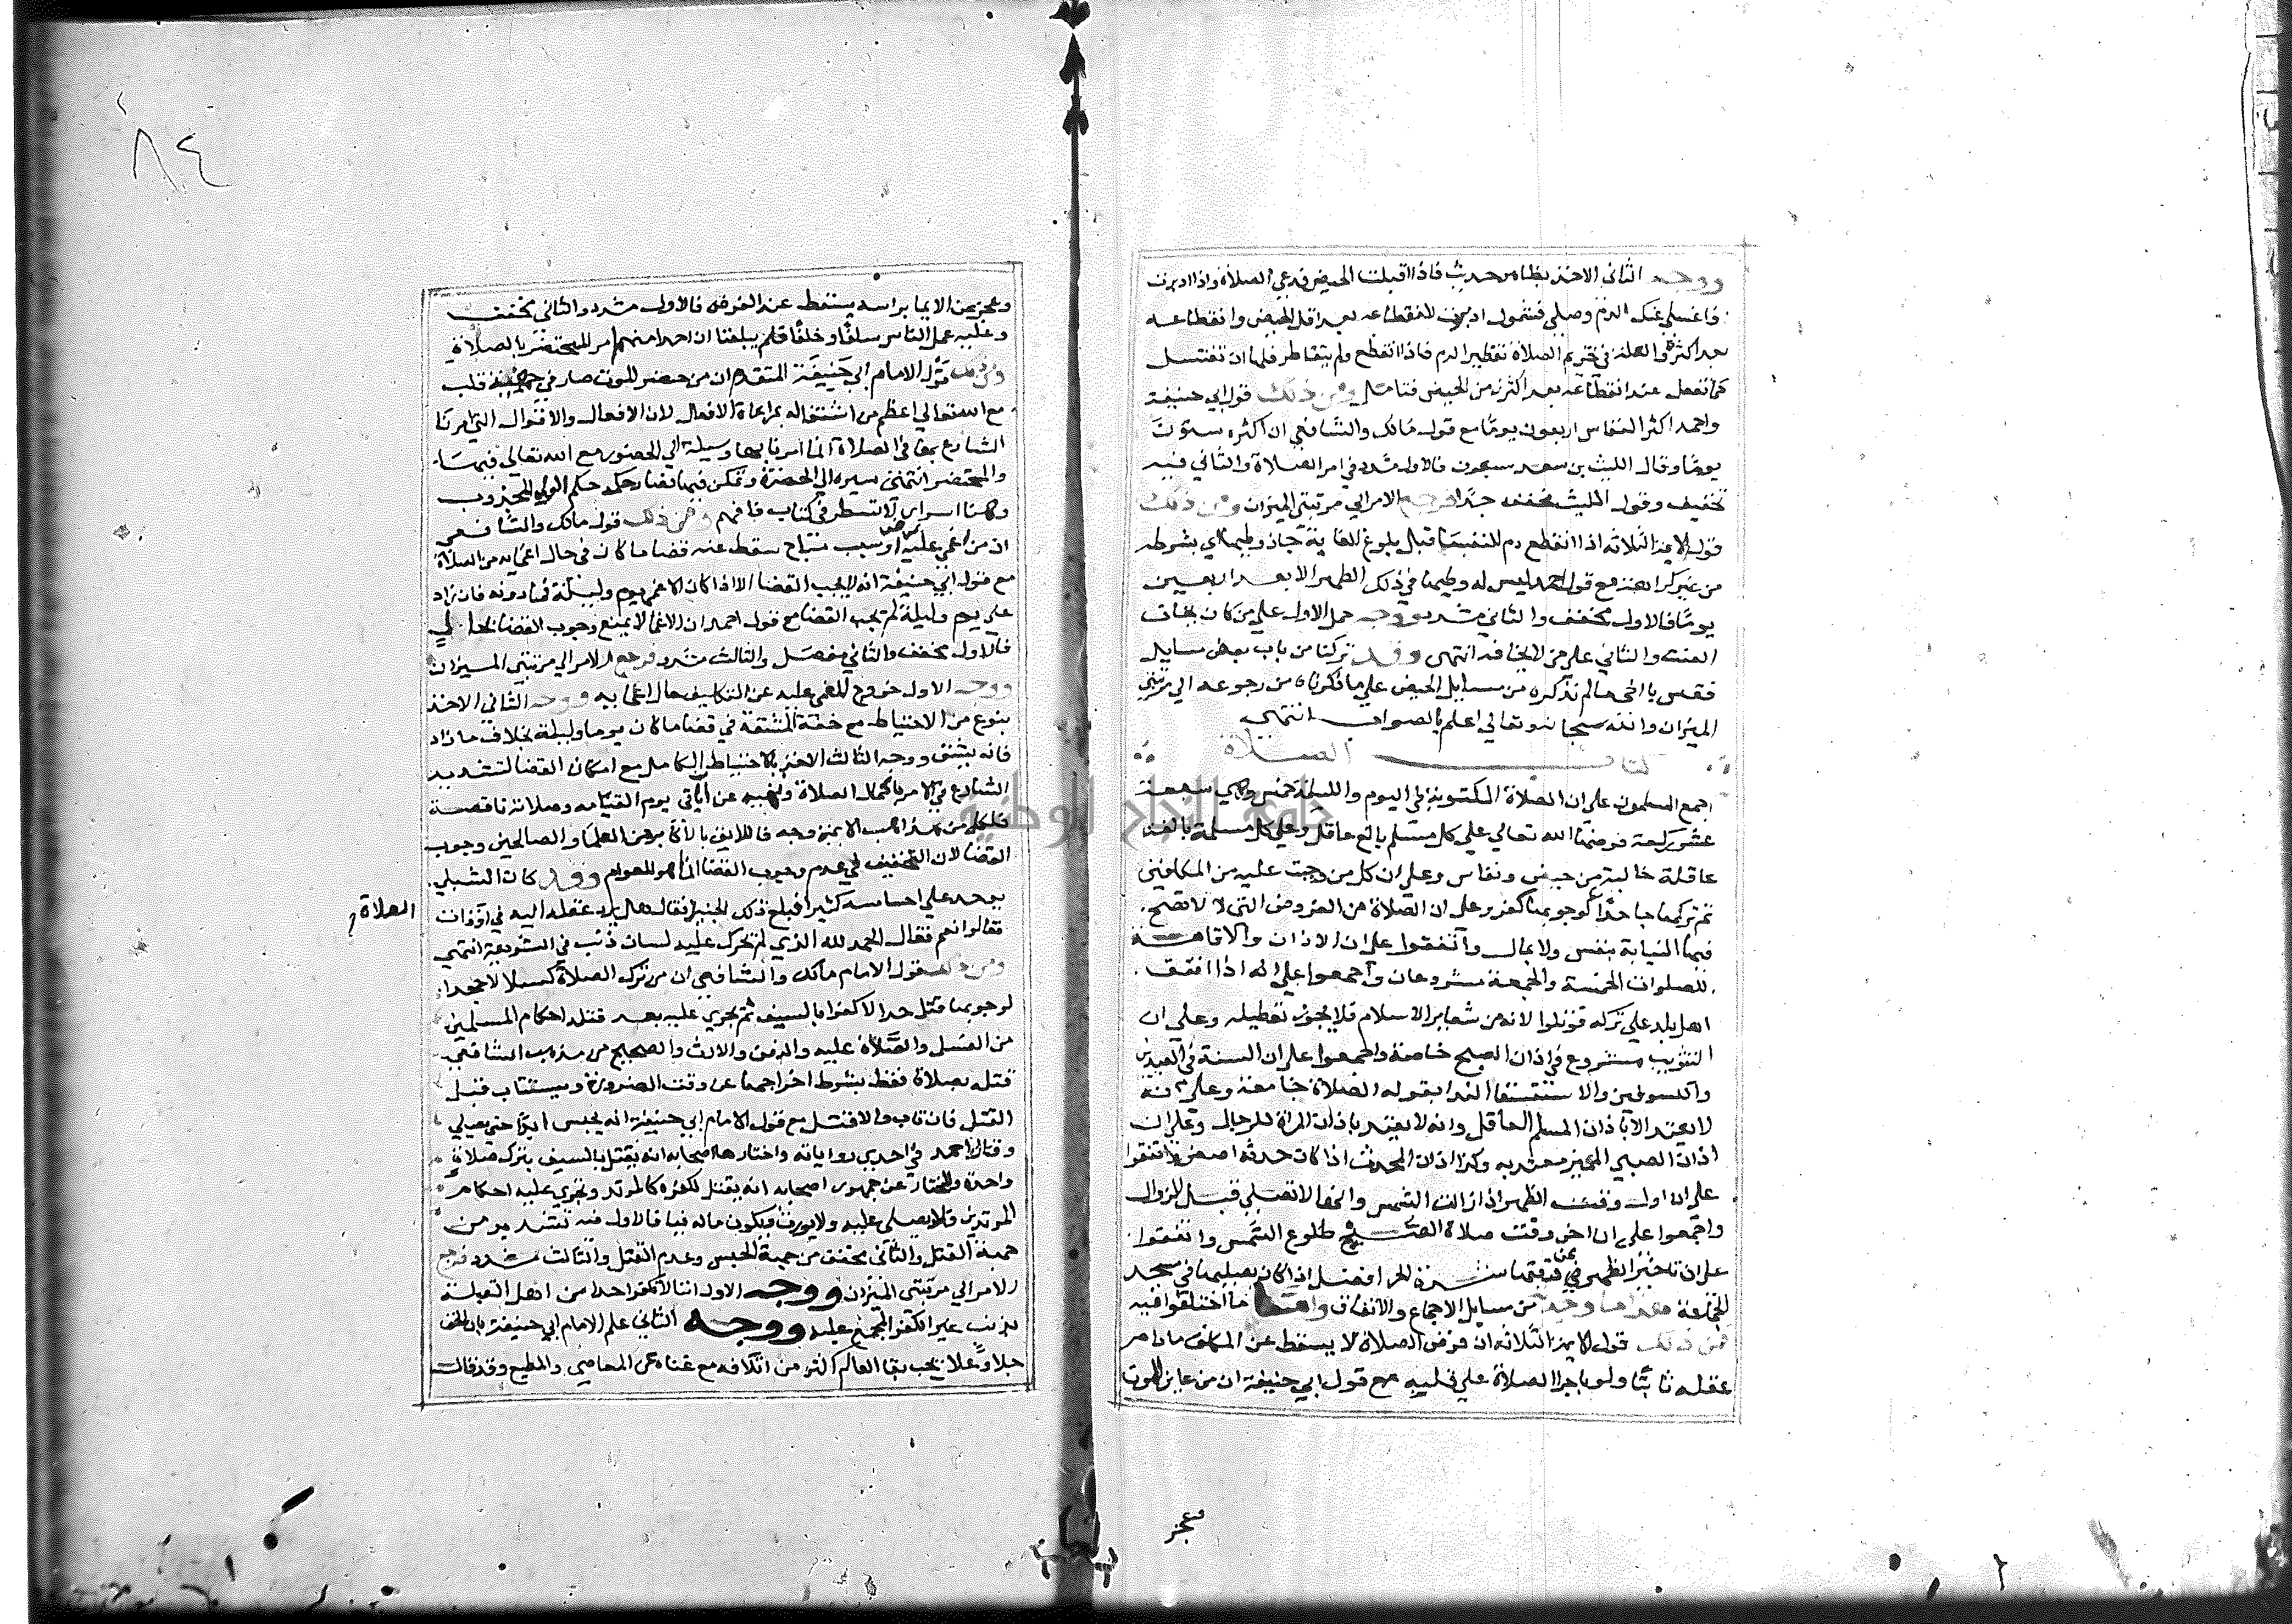 ووجه الثاني الاخذ بظاهر حديث فاذا اقبلت الحيض فدعي الصلاة واذا ادبرت
فاغسلي عنك الدم وصلي فشمول ادبرت لانقطاعه بعد اقل الحيض وانقطاعه
بعد اكثره والعلة في تحريم الصلاة تقطير الدم فاذا انقطع ولم يتقاطر فلها ان تغتسل
كما تفعل عند انقطاعه بعد اكثره من الحيض فتامل ومن ذلك قول ابي حنيفة
واحمد اكثر النفاس اربعون يوما مع قول مالك والشافعي ان اكثره ستون
يوما وقال الليث بن سعد سبعون فالاول مشدد في امر الصلاة والثاني فيه
تخفيف وقول الليث مخفف جدا فرجع الامر الي مرتبتي الميزان ومن ذلك
قول الايمة الثلاثة اذا انقطع دم النفسا قبل بلوغ الغاية جاز وطيها اي بشرطه
من غير كراهة مع قول احمد ليس له وطيها في ذلك الطهر الا بعد اربعين
يوما فالاول مخفف والثاني مشدد ووجه حمل الاول علي من كان يخاف
العنت والثاني علي من لا يخافه انتهي وقد تركنا من باب بعض مسايل
فقس يا اخي ما لم نذكره من مسايل الحيض علي ما ذكرناه من رجوعه الي مرتبتي
الميزان والله سبحانه وتعالي اعلم بالصواب انتهي
كتاب الصلاة
اجمع المسلمون علي ان الصلاة المكتوبة في اليوم والليلة خمس وهي سبعة
عشر ركعة فرضها الله تعالي علي كل مسلم بالغ عاقل وعلي كل مسلمة بالغة
عاقلة خالية من حيض ونفاس وعلي ان كل من وجبت عليه من المكلفين
ثم تركها جاحدا لوجوبها كفر وعلي ان الصلاة من الفروض التي لا لا تصح
فيها النيابة بنفس ولا بمال واتفقوا علي ان الاذان والاقامة
للصلوات الخمسة والجمعة مشروعان واجمعوا علي انه اذا اتفق
اهل بلد علي تركه قوتلوا لانه من شعاير الاسلام فلا يجوز تعطيله وعلي ان
التثويب مشروع في اذان الصبح خاصة واجمعوا علي ان السنة في العيدين
والكسوفين والاستسقا الندا بقوله الصلاة جامعة وعلي انه
لا يعتد الا باذان المسلم العاقل وانه لا يعتد باذان المراة للرجال وعلي ان
اذان الصبي المميز معتد به وكذا اذان المحدث اذا كان حدثه اصغر واتفقوا
علي ان اول وقت الظهر اذا زالت الشمس وانها لا تصلي قبل الزوال
واجمعوا علي ان اخر وقت صلاة الصبح طلوع الشمس واتفقوا
علي ان تاخير الظهر عن وقتها في شدة الحر افضل اذا كان يصليها في مسجد
الجماعة هذا ما وجدته من مسايل الاجماع والاتفاق واما ما اختلفوا فيه
فمن ذلك قول الايمة الثلاثة ان فرض الصلاة لا يسقط عن المكلف ما دام
عقله ثابتا ولو باجرا الصلاة علي قلبه مع قول ابي حنيفة ان من عاين الموت
وعجز
٨٤
وعجز عن الايما براسه يسقط عنه الفرض فالاول مشدد والثاني مخفف
وعليه عمل الناس سلفا وخلفا فلم يبلغنا ان احدا منهم امر المحتضر بالصلاة
ومن ذلك قول الامام ابي حنيفة المتقدم ان من حضر الموت صار في قلب
مع الله تعالي اعظم من اشتغاله بمراعاة الافعال لان الافعال والاقوال التي امرنا
الشارع بها في الصلاة انما امرنا بها وسيلة الي الحضور مع الله تعالي فيها
والمحتضر انتهي سيره الي الحضرة وتمكن فيها فصار حكمه حكم الولي المجذوب
وهنا اسرار لا تسطر في كتاب فافهم ومن ذلك قول مالك والشافعي
ان من اغمي عليه بمرض او سبب مباح سقط عنه قضا ما كان في حال اغمايه من الصلاة
مع قول ابي حنيفة انه لا يجب القضا الا اذا كان الاغما يوم وليلة فما دونه فان زاد
علي يوم وليلة لم يجب القضا مع قول احمد ان الاغما لا يمنع وجوب القضا بحال
فالاول مخفف والثاني مفصل والثالث مشدد فرجع الامر الي مرتبتي الميزان
ووجه الاول خروج المغمي عليه عن التكليف حال اغمايه ووجه الثاني الاخذ
بنوع من الاحتياط مع خفة المشقة في قضا ما كان يوما وليلة بخلاف ما زاد
فانه يشق ووجه الثالث الاخذ بالاحتياط الكامل مع امكان القضا لتشديد
الشارع في الامر باكمال الصلاة ونهيه عن ان ياتي يوم القيامة وصلاته ناقصة
فلكل من مذاهب الايمة وجه فاللايق بالاكابر من العلما والصالحين وجوب
القضا لان التخفيف في عدم وجوب القضا انما هو للعوام وقد كان الشبلي
يوخذ علي احساسه كثيرا فبلغ ذلك الجنيد فقال هل يرد عقله اليه في اوقات الصلاة
فقالوا نعم فقال الحمد لله الذي لم يحرك عليه لسان ذنب في الشريعة انتهي
ومن ذلك قول الامام مالك والشافعي ان من ترك الصلاة كسلا لا جحدا
لوجوبها قتل حدا لا كفرا بالسيف ثم يجري عليه بعد قتله احكام المسلمين
من الغسل والصلاة عليه والدفن والارث والصحيح من مذهب الشافعي
قتله بصلاة فقط بشرط اخراجها عن وقت الضرورة ويستتاب قبل
القتل فان تاب والا قتل مع قول الامام ابي حنيفة انه يحبس ابدا حتي يصلي
وقال احمد في احدي رواياته واختارها اصحابه انه يقتل بالسيف بترك صلاة
واحدة والمختار عن جمهور اصحابه انه يقتل لكفره كالمرتد وتجري عليه احكام
المرتدين فلا يصلي عليه ولا يورث ويكون ماله فيا فالاول فيه تشديد من
جهة القتل والثاني مخفف من جهة الحبس وعدم القتل والثالث مشدد فرجع
الامر الي مرتبتي الميزان ووجه الاول اننا لا نكفر احدا من اهل القبلة
بذنب غير الكفر المجمع عليه ووجه الثاني علم الامام ابي حنيفة بان الحق
جلا وعلا يحب بقا العالم اكثر من اتلافه مع غناه عن العاصي والمطيع وقد قالت
جامعة النجاح الوطنية